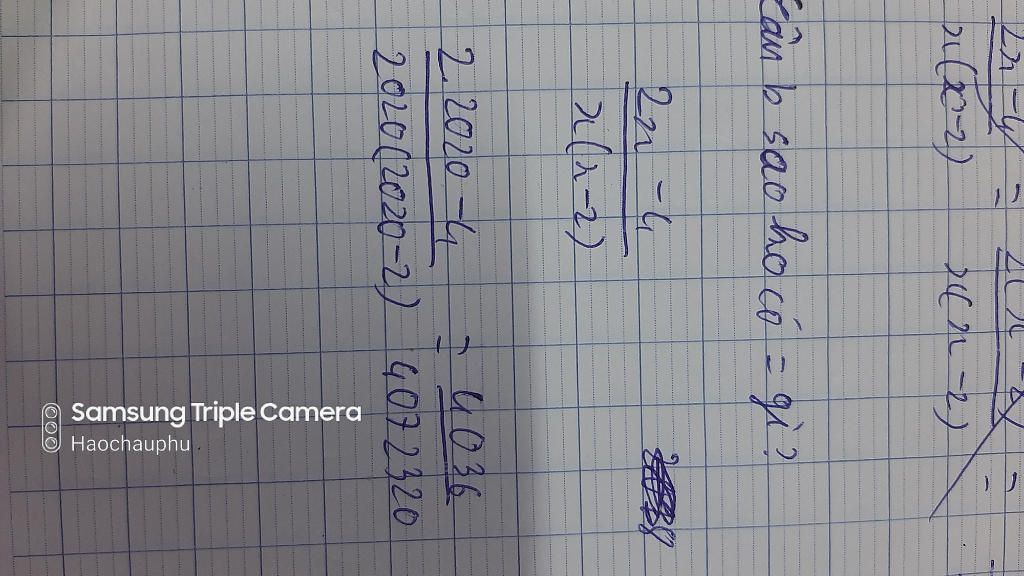 2x - 4 / x(x-2) = 2(x-2) / x(x-2) =
Câu b sao ko có = gì?
2x - 4 / x(x-2)
2.2020 - 4 / 2020(2020-2) = 4036 / 4072320
Samsung Triple Camera
Haochauphu